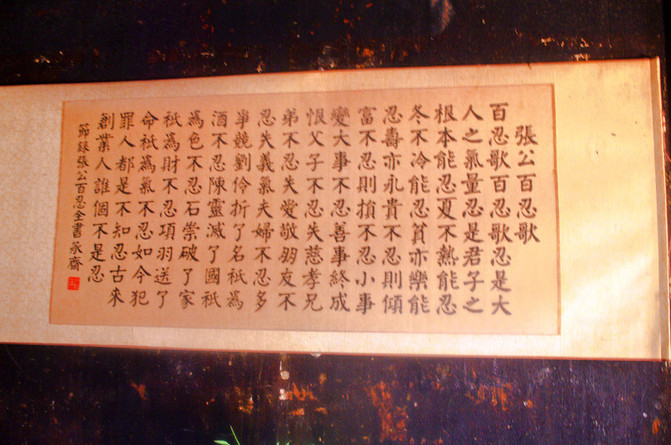 張公百忍歌
百忍歌百忍歌忍是大
人之氣量忍是君子之
根本能忍夏不熱能忍
冬不冷能忍貧亦樂能
忍壽亦永貴不忍則傾
富不忍則損不忍小事
變大事不忍善事終成
恨父子不忍失慈孝兄
弟不忍失愛敬朋友不
忍失義氣夫婦不忍多
爭競劉伶折了名祇為
酒不忍陳靈滅了國祇
為色不忍石崇破了家
祇為財不忍項羽送了
命祇為氣不忍如今犯
罪人都是不知忍古來
創業人誰個不是忍
節録張公百忍全書承齋